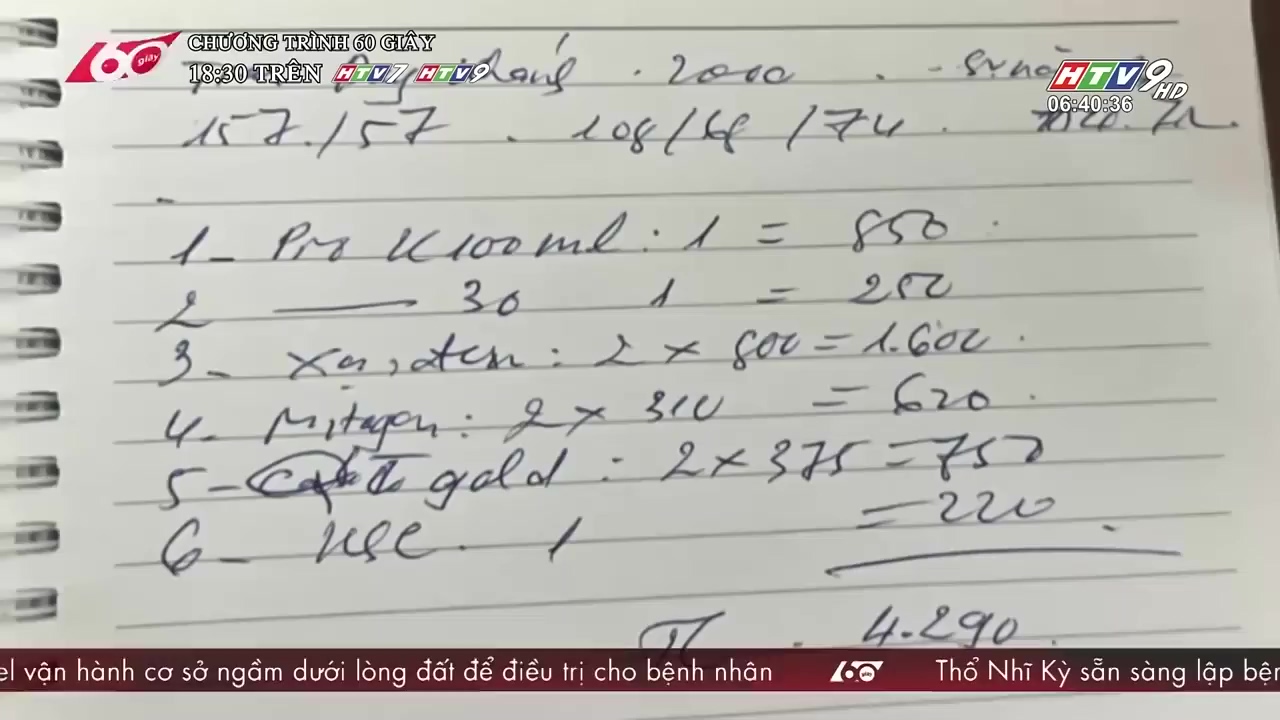 60 giây
CHƯƠNG TRÌNH 60 GIÂY
18:30 TRÊN HTV7 HTV9
HTV9 HD
06:40:36
2010
157/57 . 108/68/74 .
1- Pro K 100ml : 1 = 850
2 —— 30 1 = 250
3- : 2 x 800 = 1.600
4- Mitagen : 2 x 310 = 620
5- gold : 2 x 375 = 750
6- KSC . 1 = 220
4.290
el vận hành cơ sở ngầm dưới lòng đất để điều trị cho bệnh nhân 60 giây Thổ Nhĩ Kỳ sẵn sàng lập bện